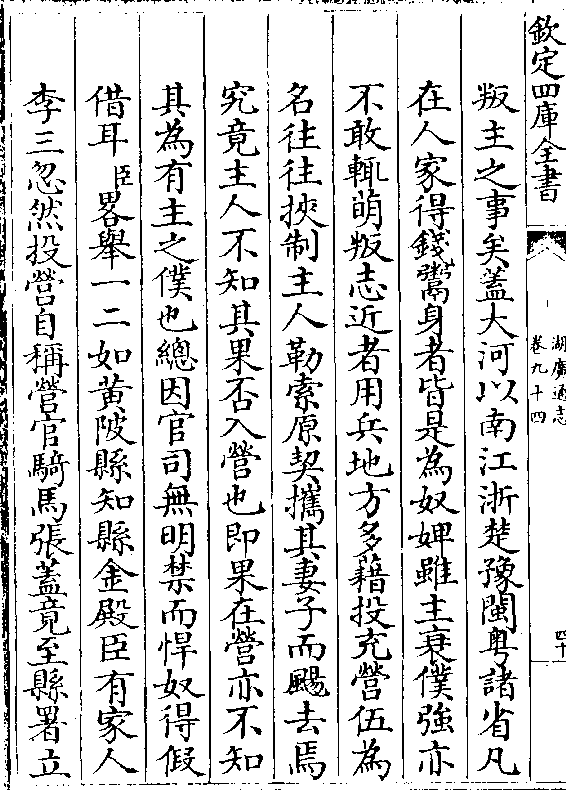 欽定四庫全書
湖廣通志
卷九十四
四十
叛主之事矣蓋大河以南江浙楚豫閩粤諸省凡
在人家得錢鬻身者皆是為奴婢雖主衰僕強亦
不敢輙萌叛志近者用兵地方多藉投充營伍為
名往往挾制主人勒索原契攜其妻子而颺去焉
究竟主人不知其果否入營也即果在營亦不知
其為有主之僕也總因官司無明禁而悍奴得假
借耳臣畧舉一二如黄陂縣知縣金殿臣有家人
李三忽然投營自稱營官騎馬張蓋竟至縣署立